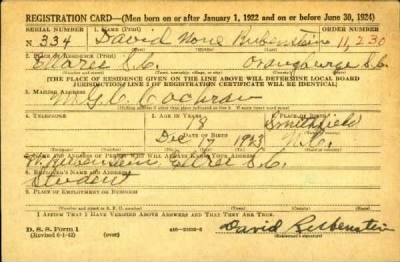 REGISTRATION CARD—(Men born on or after January 1, 1922 and on or before June 30, 1924)
SERIAL NUMBER 1. NAME (Print) ORDER NUMBER
N 334 David None Rubenstein 11,230
2. PLACE OF RESIDENCE (Print)
S.C. Orangeburg S.C.
(Number and street) (Town, township, village, or city) (County) (State)
[THE PLACE OF RESIDENCE GIVEN ON THE LINE ABOVE WILL DETERMINE LOCAL BOARD
JURISDICTION; LINE 2 OF REGISTRATION CERTIFICATE WILL BE IDENTICAL]
3. MAILING ADDRESS
[Mailing address if other than place indicated on line 2. If same insert word same]
4. TELEPHONE 5. AGE IN YEARS 6. PLACE OF BIRTH
18 Smithfield
DATE OF BIRTH
Dec 17 1923 N.C.
7. NAME AND ADDRESS OF PERSON WHO WILL ALWAYS KNOW YOUR ADDRESS
S.C.
8. EMPLOYER'S NAME AND ADDRESS
Student
9. PLACE OF EMPLOYMENT OR BUSINESS
(Number and street or R. F. D. number) (Town) (County) (State)
I AFFIRM THAT I HAVE VERIFIED ABOVE ANSWERS AND THAT THEY ARE TRUE.
D. S. S. Form 1
(Revised 6-1-42) (over)
David Rubenstein
(Registrant's signature)